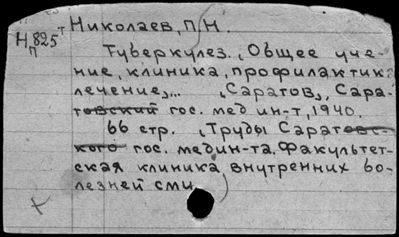 Николаев, П.Н.
Н 825 т
п
Туберкулез. Общее уче-
ние, клиника, профилактика
лечение,... "Саратов", Сара-
товский гос. мед ин-т, 1940.
66 стр. "Труды Саратовс-
кого гос. медин-та. Факультет-
ская клиника внутренних бо-
лезней сми